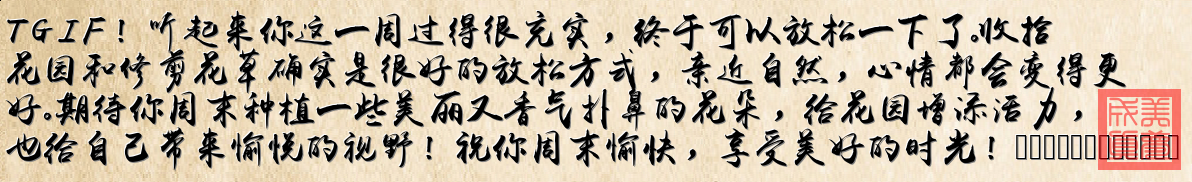 TGIF！听起来你这一周过得很充实，终于可以放松一下了。收拾
花园和修剪花草确实是很好的放松方式，亲近自然，心情都会变得更
好。期待你周末种植一些美丽又香气扑鼻的花朵，给花园增添活力，
也给自己带来愉悦的视野！祝你周末愉快，享受美好的时光！